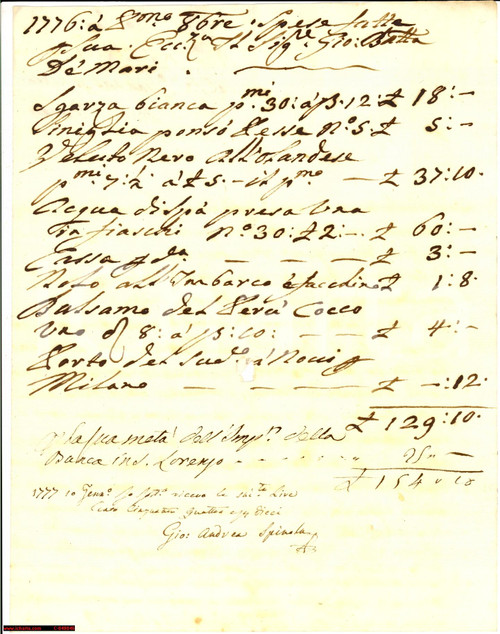 1776: á p.mo 8bre. Spese fatte
p Sua. Ecc.za Il Sig.e Gio: Batta
De Mari.
Sgarza bianca p.mi 30: á ß.12: £ 18:—
ponsó N.o 5 £ 5:—
Veluto Nero all'olandese
p.mi 7:½ á £ 5.— il p.mo — £ 37:10.
Acqua di spá presa Una
in fiaschi N.o 30: £ 2:— £ 60:—
Cassa p d.a — — — £ 3:—
Nolo all'Imbarco e facchino £ 1:8.
Balsamo del Cocco
Uno 8: á ß.10: — — £ 4:—
Porto del Sud.o á Novi
Milano — — — — £ —:12.
£ 129:10.
p la sua metá dell' Imp.o della
Banca in S. Lorenzo 25 —
£ 154 10
1777 10 Gena.o Io ricevo le Lire
Cento Cinquanta quattro e Dieci
Gio: Andrea Spinola